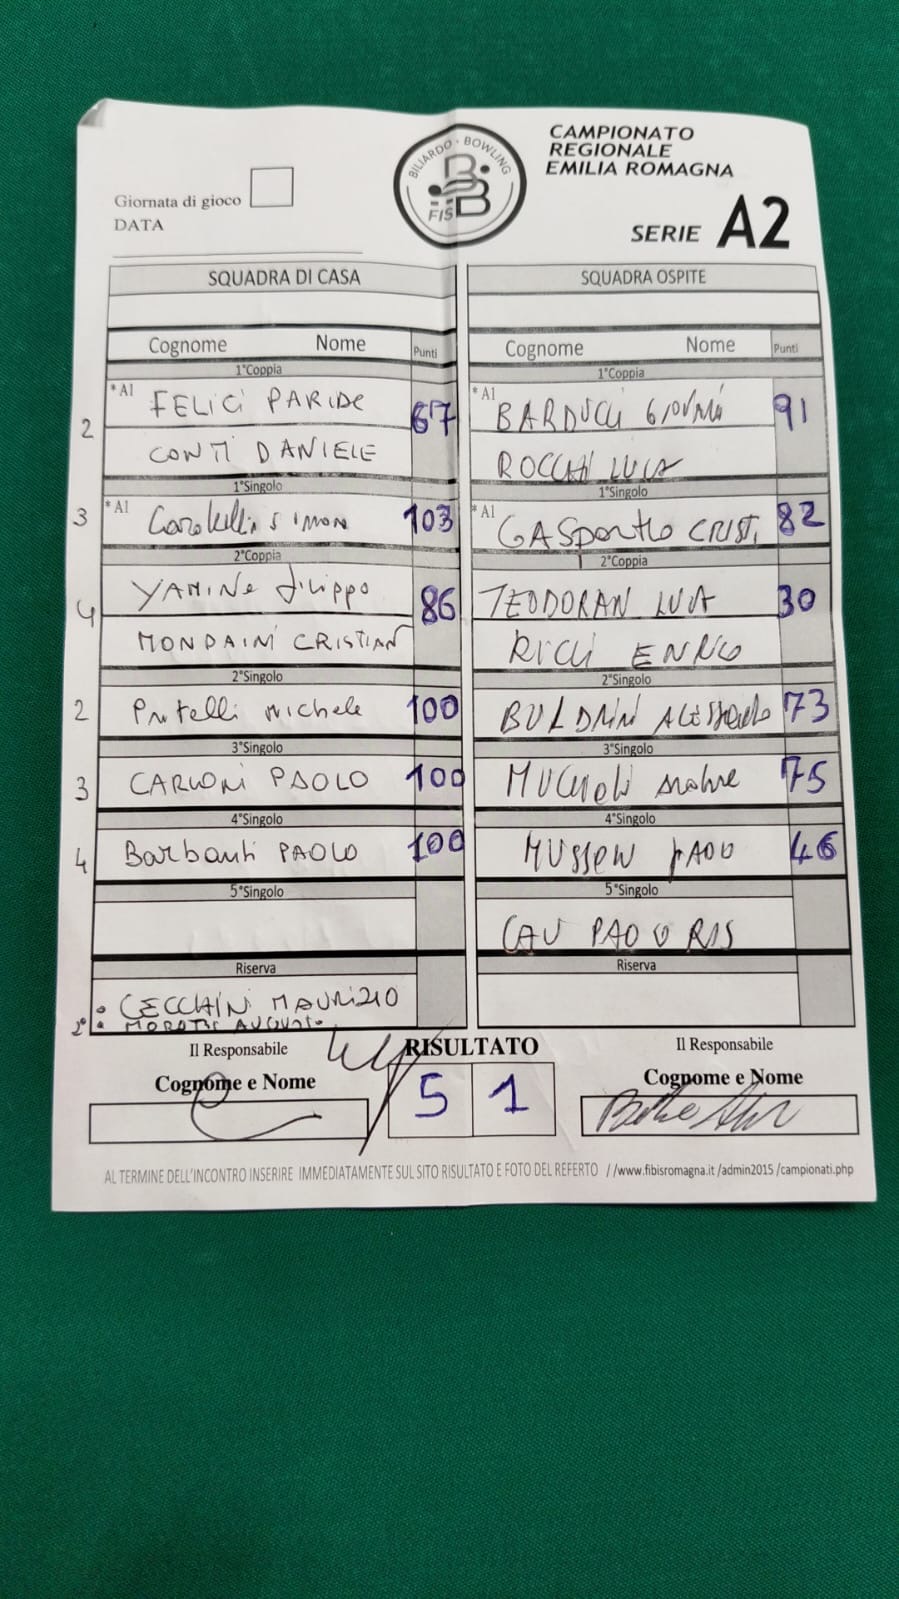 BILIARDO · BOWLING
FISBB
CAMPIONATO
REGIONALE
EMILIA ROMAGNA
SERIE A2
Giornata di gioco
DATA
SQUADRA DI CASA SQUADRA OSPITE
Cognome Nome Punti Cognome Nome Punti
1°Coppia 1°Coppia
*A1 FELICI PARIDE 67 *A1 BARDUCCI 91
2
CONTI DANIELE LUCA
1°Singolo 1°Singolo
3 *A1 SIMON 103 *A1 CRIST. 82
2°Coppia 2°Coppia
YAMINE filippo 86 TEODORAN LUCA 30
4
MONDAINI CRISTIAN RICCI ENRICO
2°Singolo 2°Singolo
2 Pratelli michele 100 73
3°Singolo 3°Singolo
3 CARLONI PAOLO 100 75
4°Singolo 4°Singolo
4 Barbanti PAOLO 100 46
5°Singolo 5°Singolo
PAOLO RIS
Riserva Riserva
• CECCHINI MAURIZIO
2° •
Il Responsabile RISULTATO Il Responsabile
Cognome e Nome Cognome e Nome
5 1
AL TERMINE DELL'INCONTRO INSERIRE IMMEDIATAMENTE SUL SITO RISULTATO E FOTO DEL REFERTO //www.fibisromagna.it /admin2015 /campionati.php